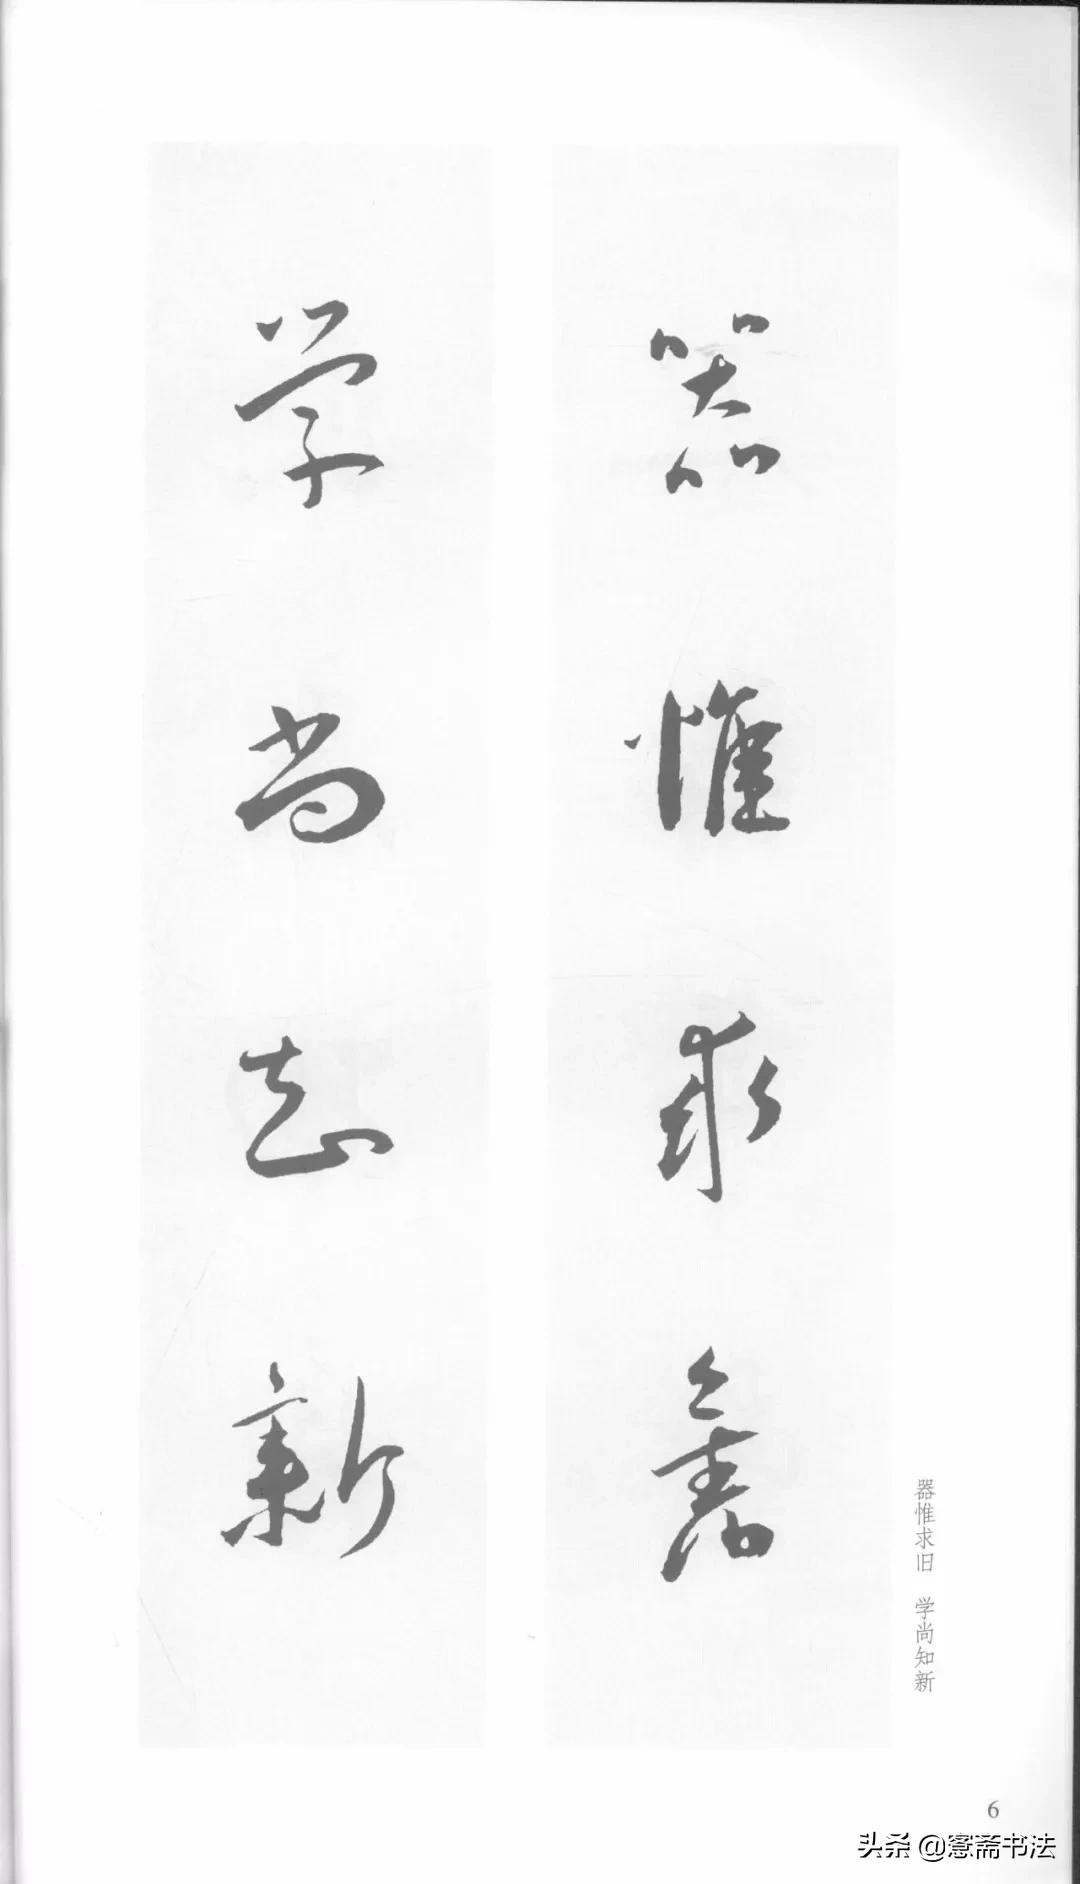 器惟求舊
学尚知新
器惟求旧 学尚知新
6
头条 @窓斋书法